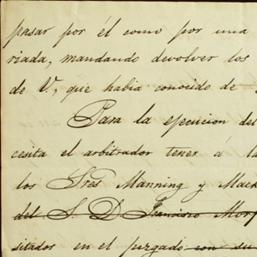 pasar por él como por una
riada, mandando devolver los
de V, que habia conocido de
Para la ejecucion del
cesita el arbitrador tener á la
los Sres Manning y Mack
del S. D. Francisco Mor
sitados en el juzgado con su